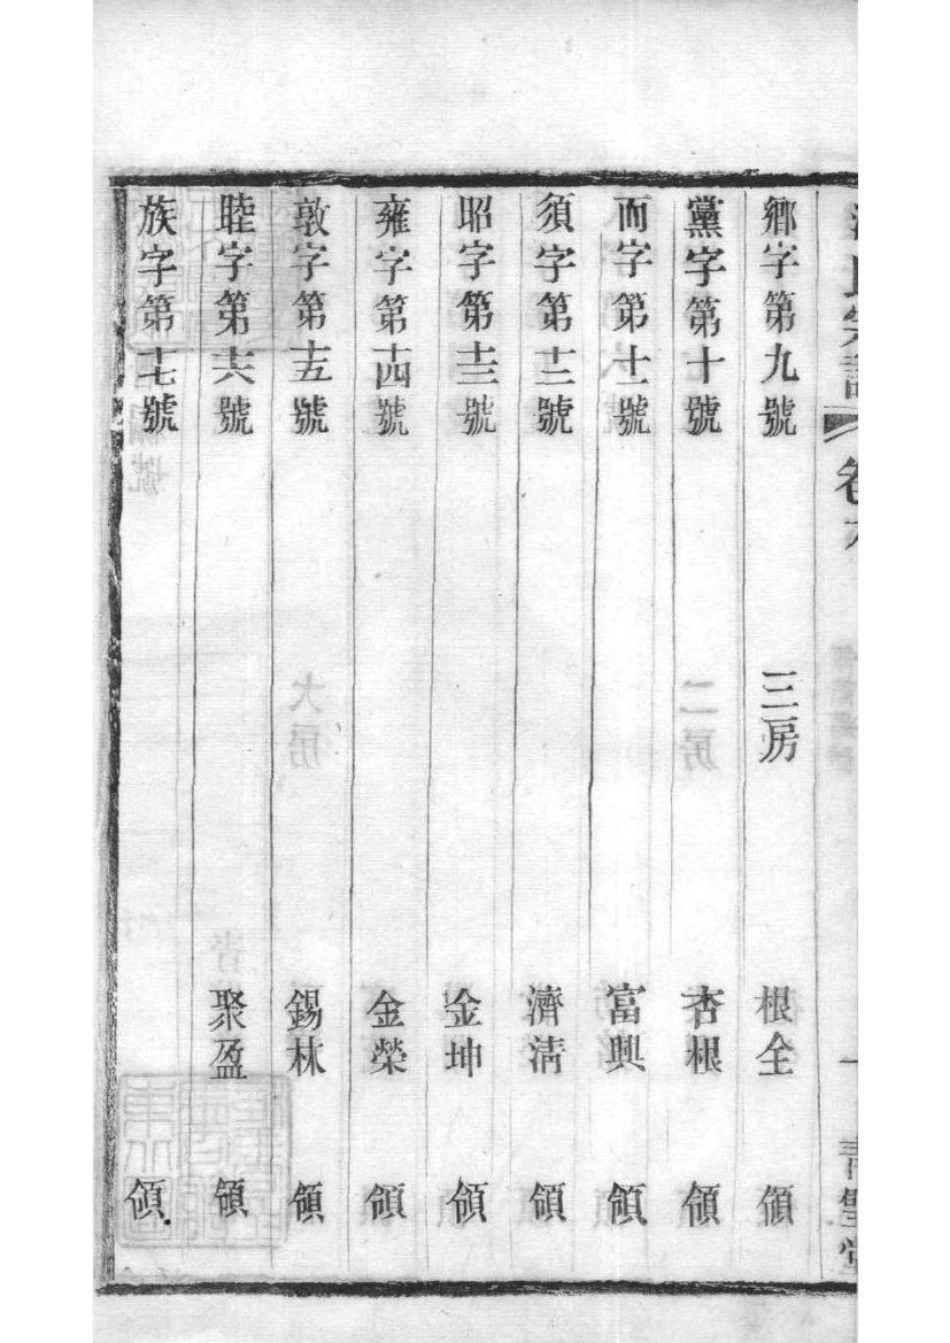 氏宗譜 卷六 一 青雲堂
鄉字第九號 三房 根全 領
黨字第十號 杏根 領
而字第十一號 富興 領
須字第十二號 濟清 領
昭字第十三號 金坤 領
雍字第十四號 金榮 領
敦字第十五號 錫林 領
睦字第十六號 聚盈 領
族字第十七號 領